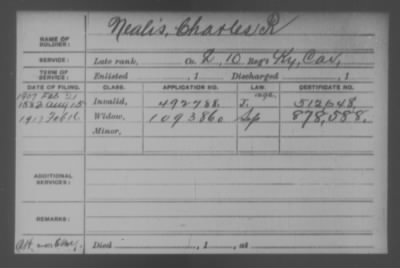 Nealis, Charles R
NAME OF SOLDIER:
SERVICE: Late rank, Co. L, 10 Reg't Ky, Cav,
TERM OF SERVICE: Enlisted , 1 Discharged , 1
DATE OF FILING. CLASS. APPLICATION NO. LAW. CERTIFICATE NO.
1907 Feb 21
1883 Aug 15 Invalid, 492788. J. 512648,
1917 Feb Widow, 1093860 878,588.
Minor,
ADDITIONAL SERVICES:
REMARKS:
Died , 1 , at